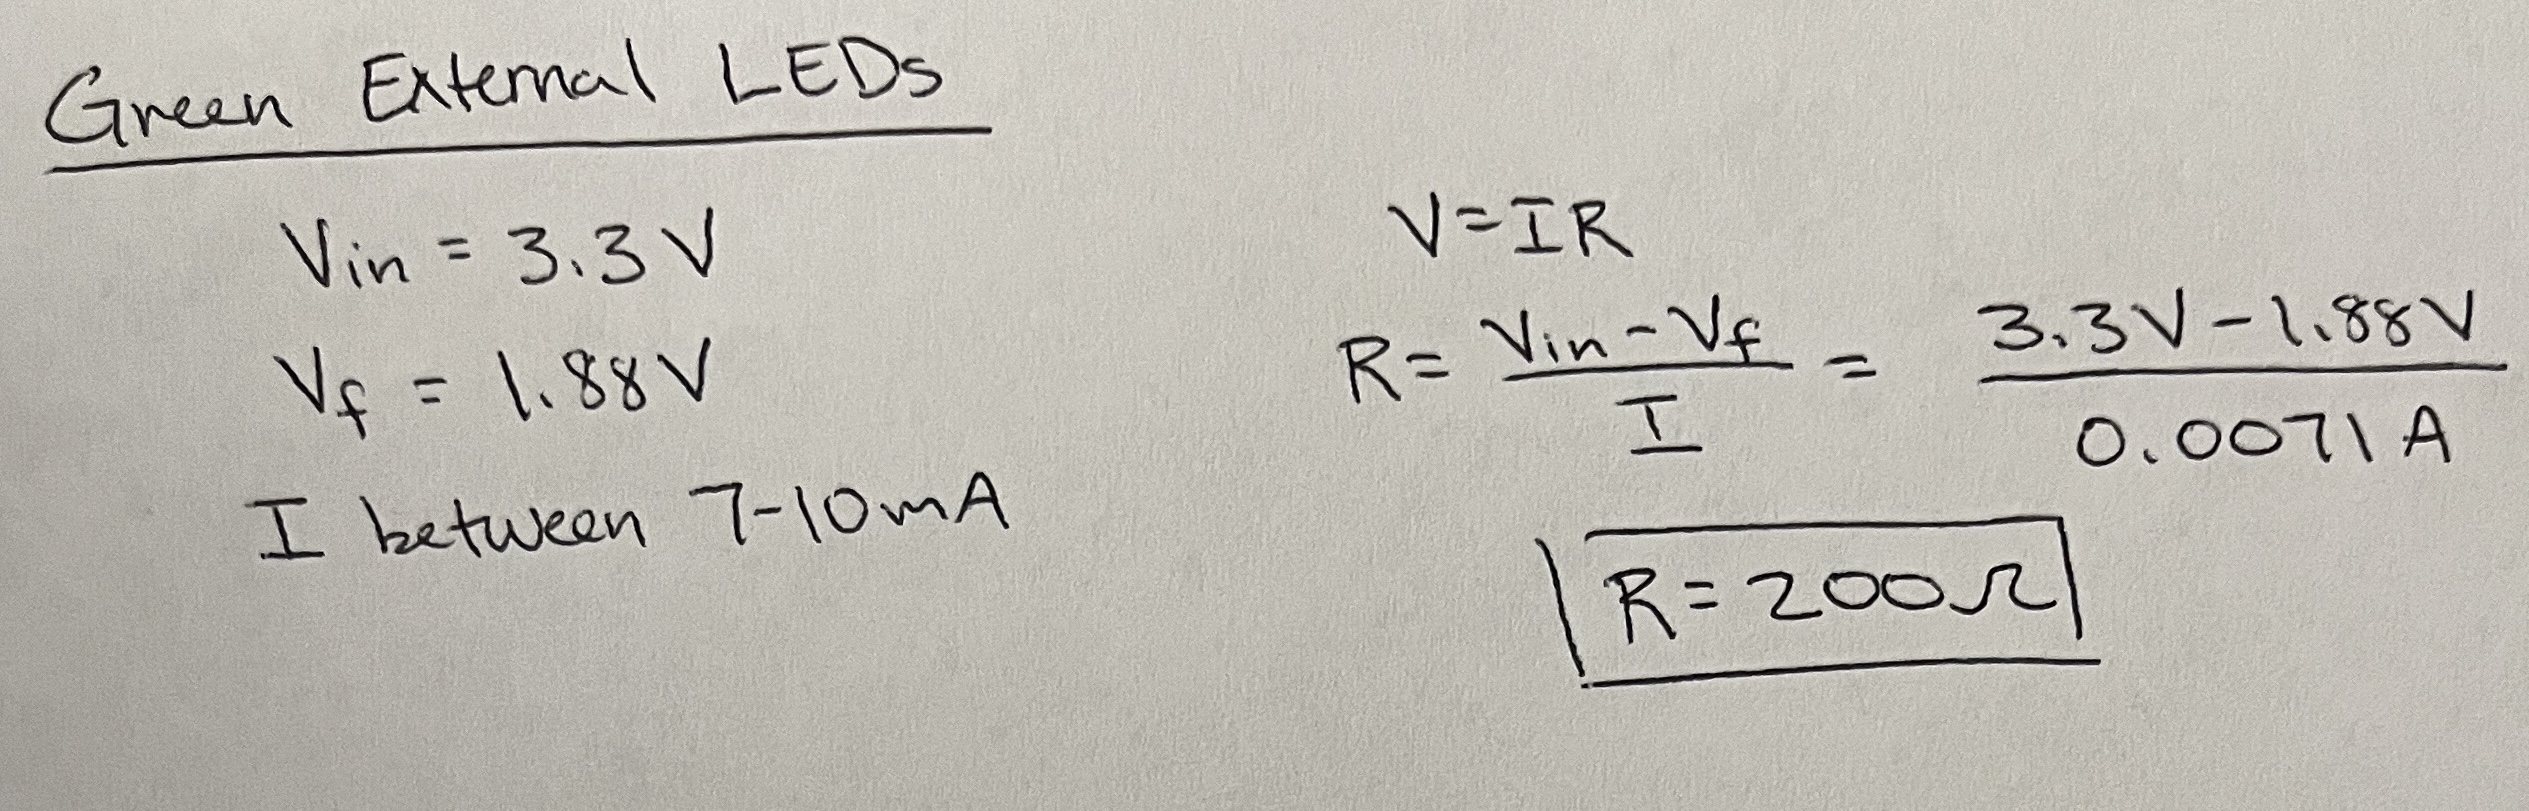 Green External LEDs
Vin = 3.3 V
Vf = 1.88 V
I between 7-10 mA
V=IR
R= Vin - Vf / I = 3.3V - 1.88V / 0.0071 A
R= 200Ω